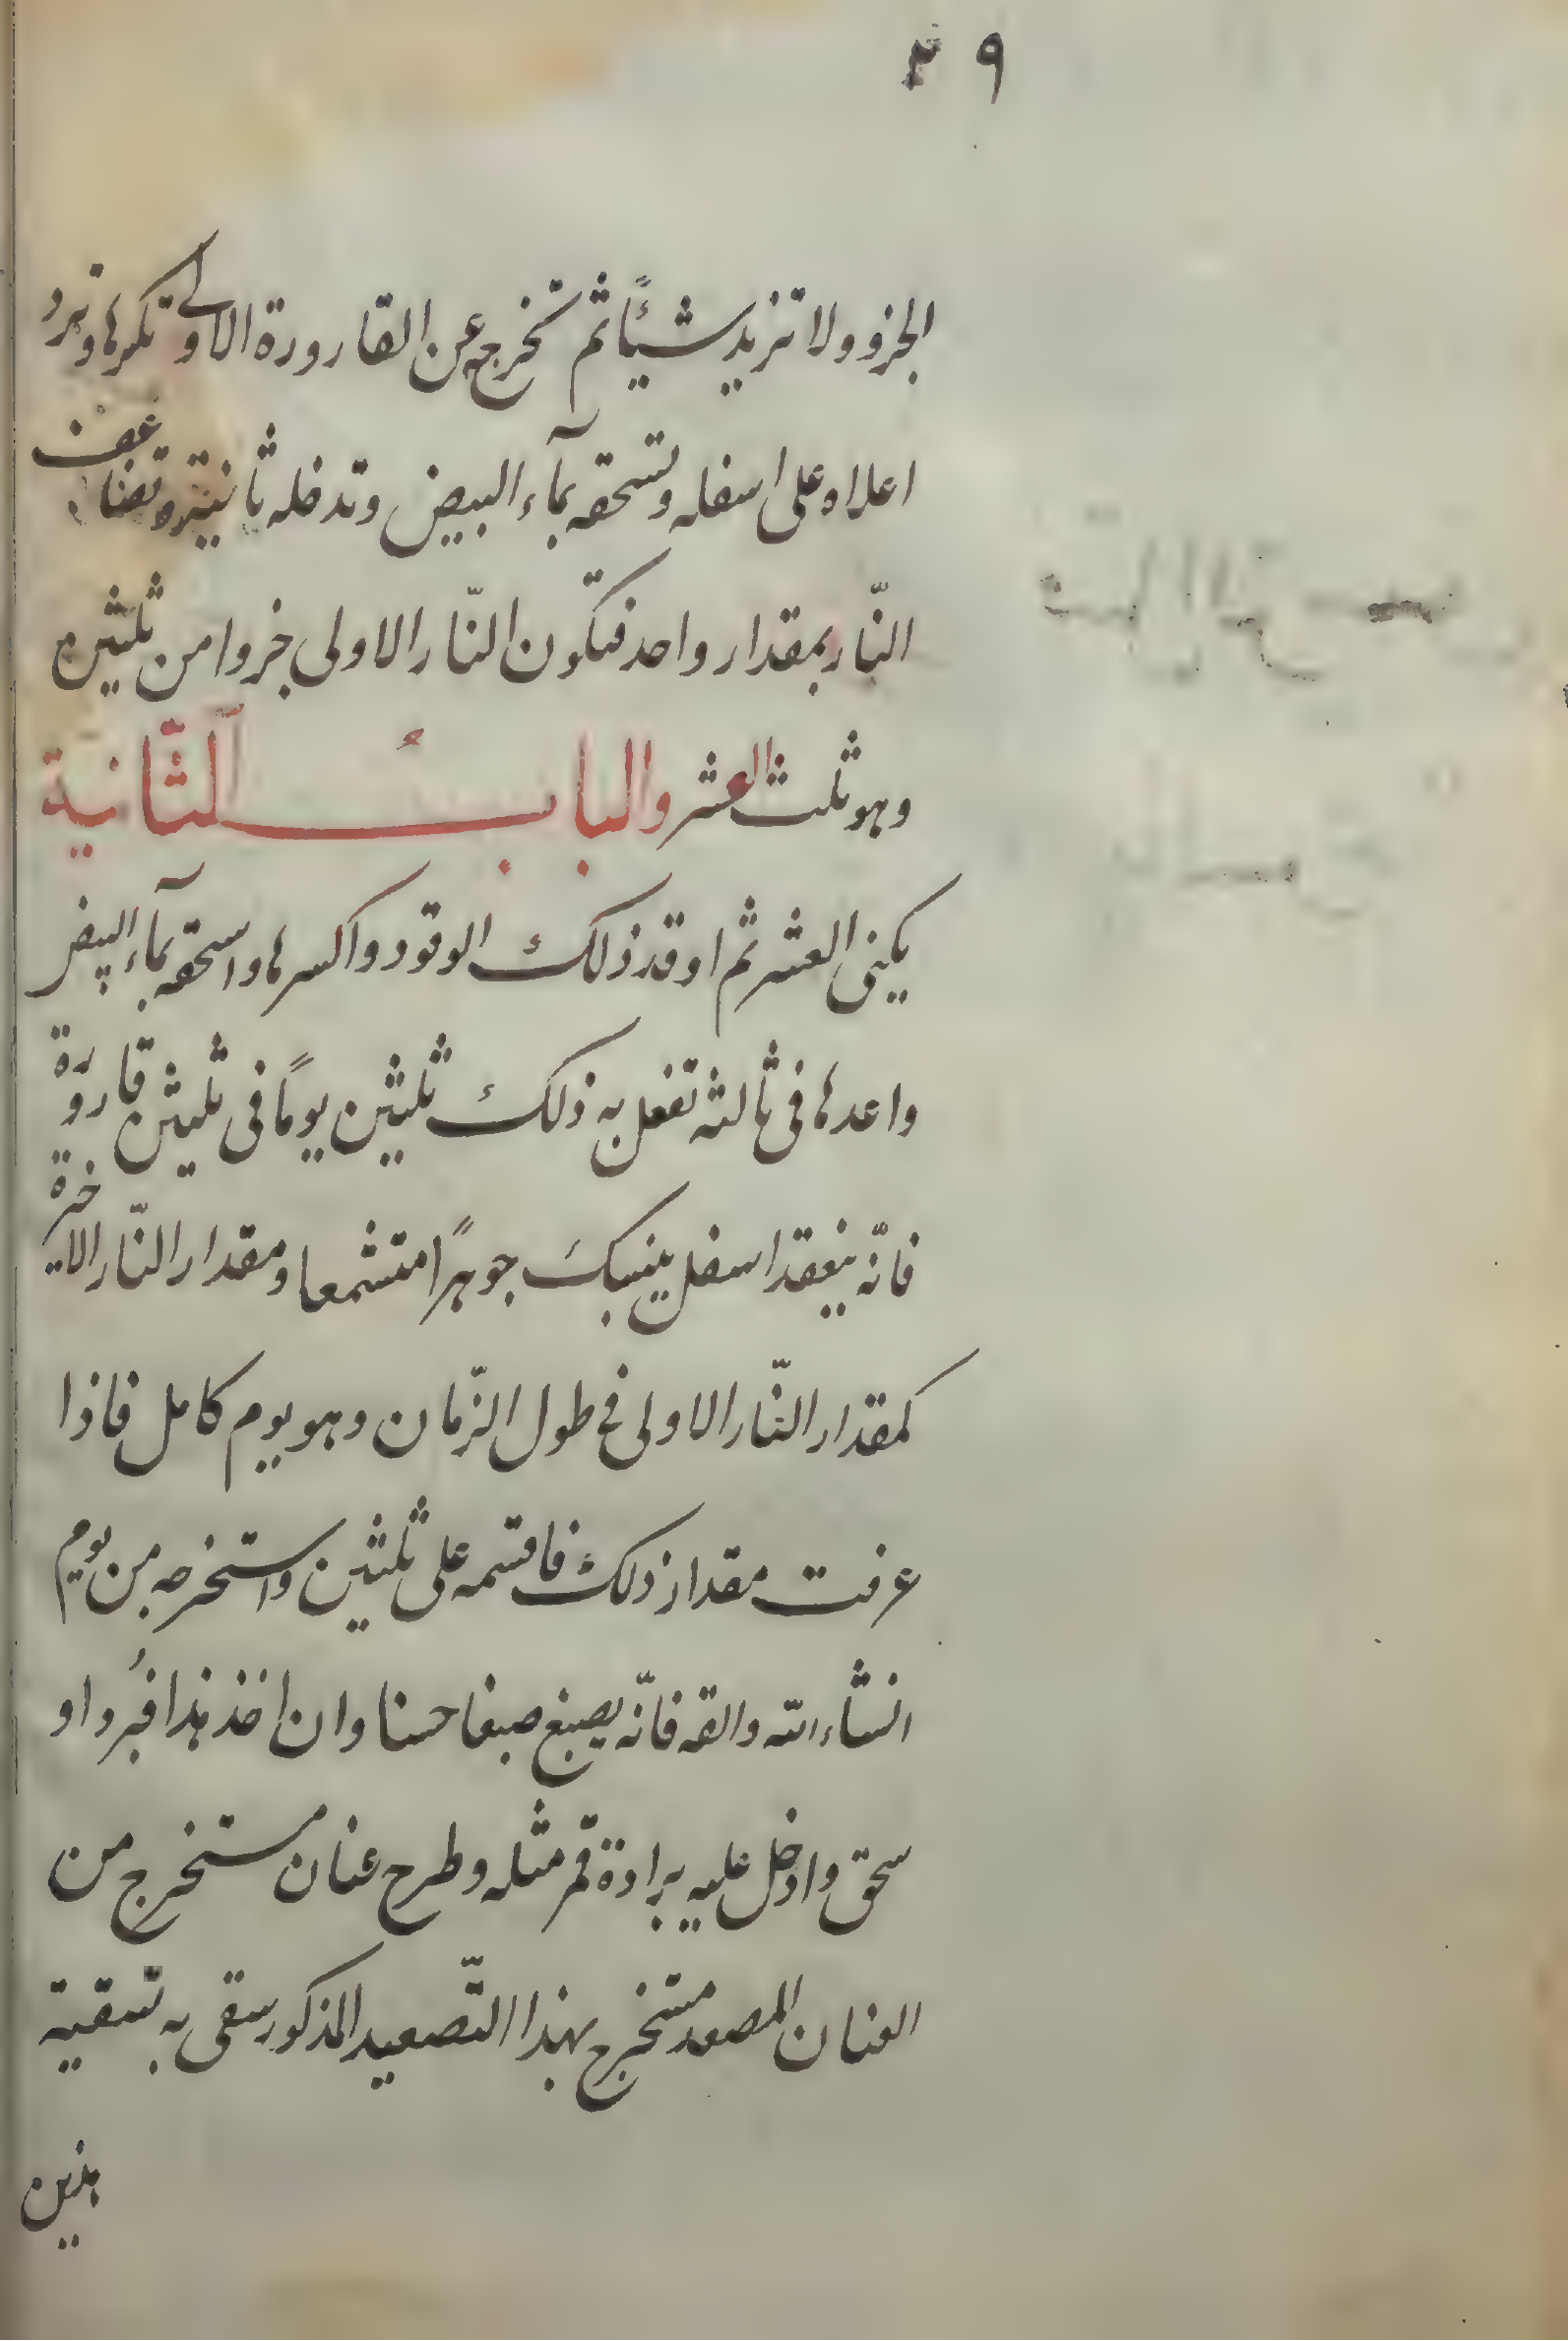 ۴۹
الجزو ولا تزيد شيئًا ثم تخرجه عن القارورة الاولى تكسرها وترد
اعلاه على اسفله وتسحقه بمآء البيض وتدخله ثانية وتضاعف
النّار بمقدار واحد فتكون النّار الاولى جزوا من ثلثين
وهو ثلث العشر والبابُ الثّانية
يكنى العشر ثم اوقد ذلك الوقود واكسرها واسحقه بمآء البيض
واعدها فى ثالثه تفعل به ذلك ثلثين يومًا فى ثلثين قارورة
فانّه ينعقد اسفل ينسبك جوهرًا متشمعا ومقدار النّار الاخيرة
كمقدار النّار الاولى فى طول الزّمان وهو يوم كامل فاذا
عرفت مقدار ذلك فاقسمه على ثلثين واستخرجه من يوم
انشاء الله والقه فانّه يصبغ صبغا حسنا وان اخذ هذا فبُرد او
سحق وادخل عليه برادة قمر مثله وطرح عنان مستخرج من
العنان المصعد مستخرج بهذا التّصعيد المذكور سقى به تسقية
هذين